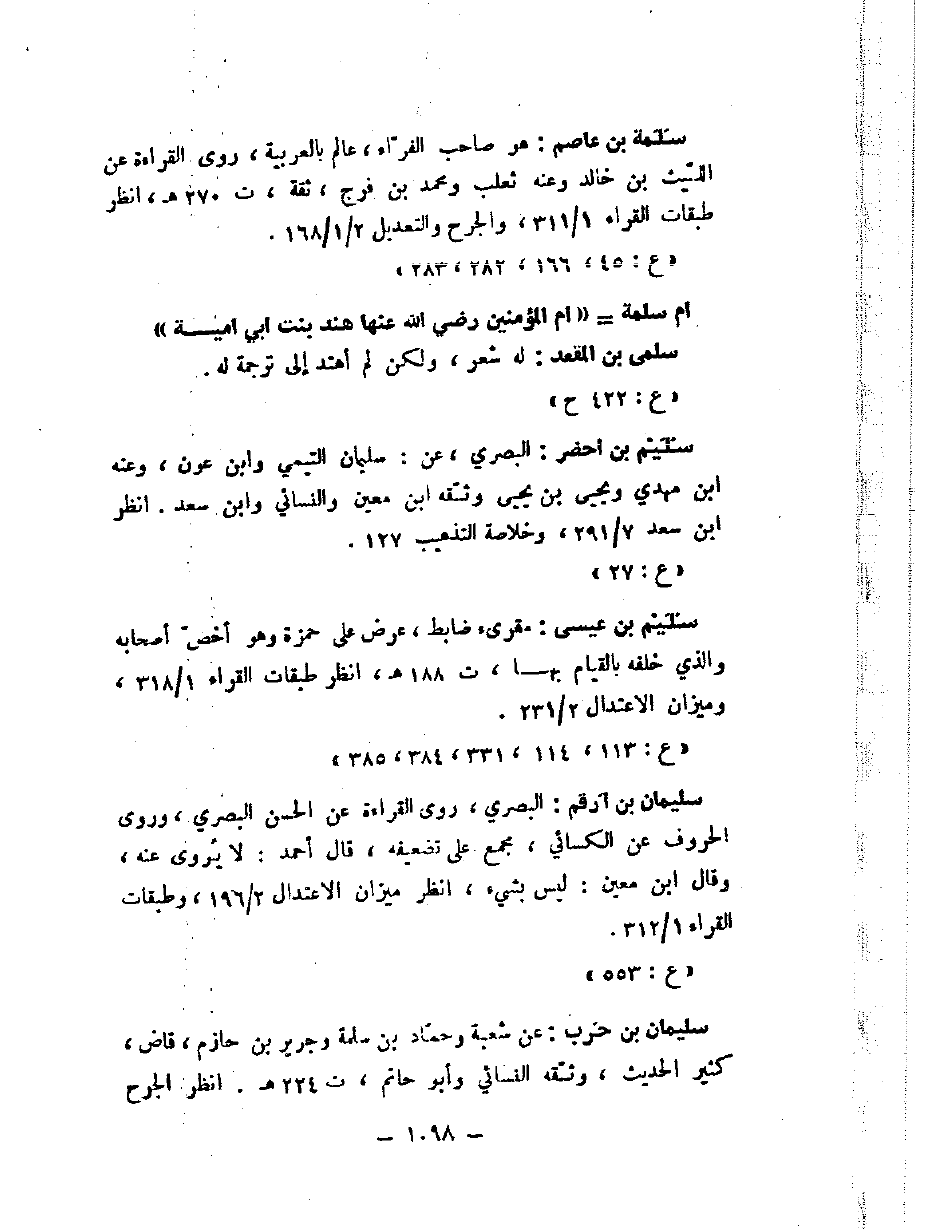 سَلَمة بن عاصم : هو صاحب الفرّاء ، عالم بالعربية ، روى القراءة عن
الليث بن خالد وعنه ثعلب ومحمد بن فرج ، ثقة ، ت ٢٧٠ هـ ، انظر
طبقات القراء ٣١١/١ ، والجرح والتعديل ١٦٨/١/٢ .
«ع : ٤٥ ، ١٦٦ ، ٢٨٢ ، ٢٨٣»
ام سلمة = «ام المؤمنين رضي الله عنها هند بنت ابي اميـــة»
سلمى بن المقعد : له شعر ، ولكن لم أهتد إلى ترجمة له .
«ع : ٤٢٢ ح»
سُلَيْم بن اخضر : البصري ، عن : سليمان التيمي وابن عون ، وعنه
ابن مهدي ويحيى بن يحيى وثّقه ابن معين والنسائي وابن سعد . انظر
ابن سعد ٢٩١/٧ ، وخلاصة التذهيب ١٢٧ .
«ع : ٢٧»
سُلَيْم بن عيسى : مقرىء ضابط ، عرض على حمزة وهو أخصّ أصحابه
والذي خلفه بالقيام بهـــا ، ت ١٨٨ هـ ، انظر طبقات القراء ٣١٨/١ ،
وميزان الاعتدال ٢٣١/٢ .
«ع : ١١٣ ، ١١٤ ، ٣٣١ ، ٣٨٤ ، ٣٨٥»
سليمان بن أرقم : البصري ، روى القراءة عن الحسن البصري ، وروى
الحروف عن الكسائي ، مجمع على تضعيفه ، قال أحمد : لا يُروى عنه ،
وقال ابن معين : ليس بشيء ، انظر ميزان الاعتدال ١٩٦/٢ ، وطبقات
القراء ٣١٢/١ .
«ع : ٥٥٣»
سليمان بن حَرب : عن شعبة وحمّاد بن سلمة وجرير بن حازم ، قاض ،
كثير الحديث ، وثّقه النسائي وأبو حاتم ، ت ٢٢٤ هـ . انظر الجرح
– ١٠٩٨ –